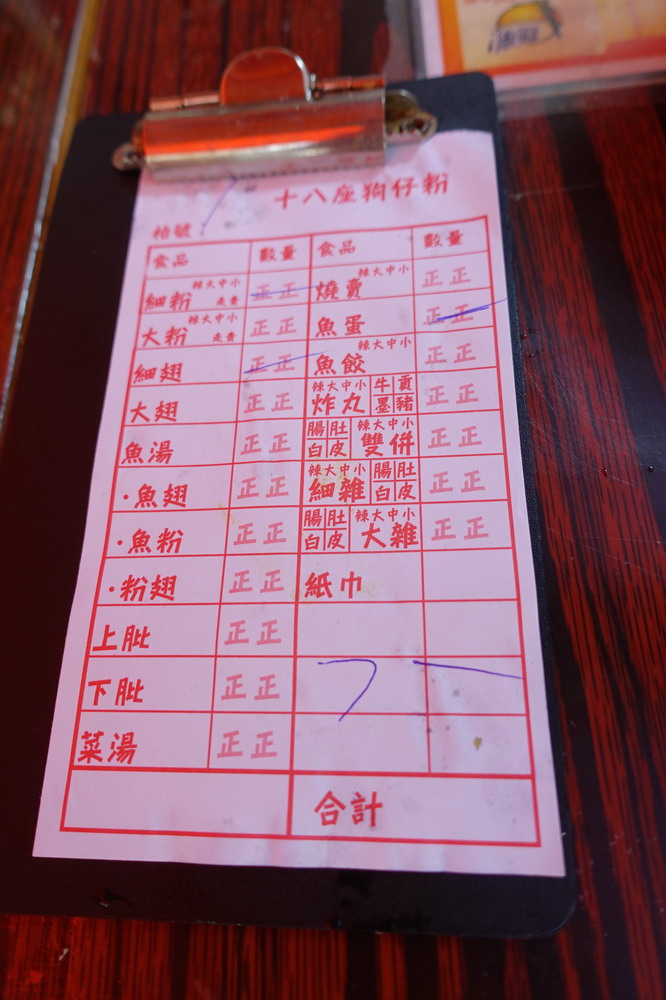 十八座狗仔粉
枱號：
食品 數量 食品 數量
細粉 辣大中小 走青 正正 燒賣 辣大中小 正正
大粉 辣大中小 走青 正正 魚蛋 正正
細翅 正正 魚餃 辣大中小 正正
大翅 正正 辣大中小 炸丸 牛貢墨豬 正正
魚湯 正正 腸肚白皮 辣大中小 雙併 正正
·魚翅 正正 辣大中小 細雜 腸肚白皮 正正
·魚粉 正正 腸肚白皮 辣大中小 大雜 正正
·粉翅 正正 紙巾
上肶 正正
下肶 正正
菜湯 正正
合計